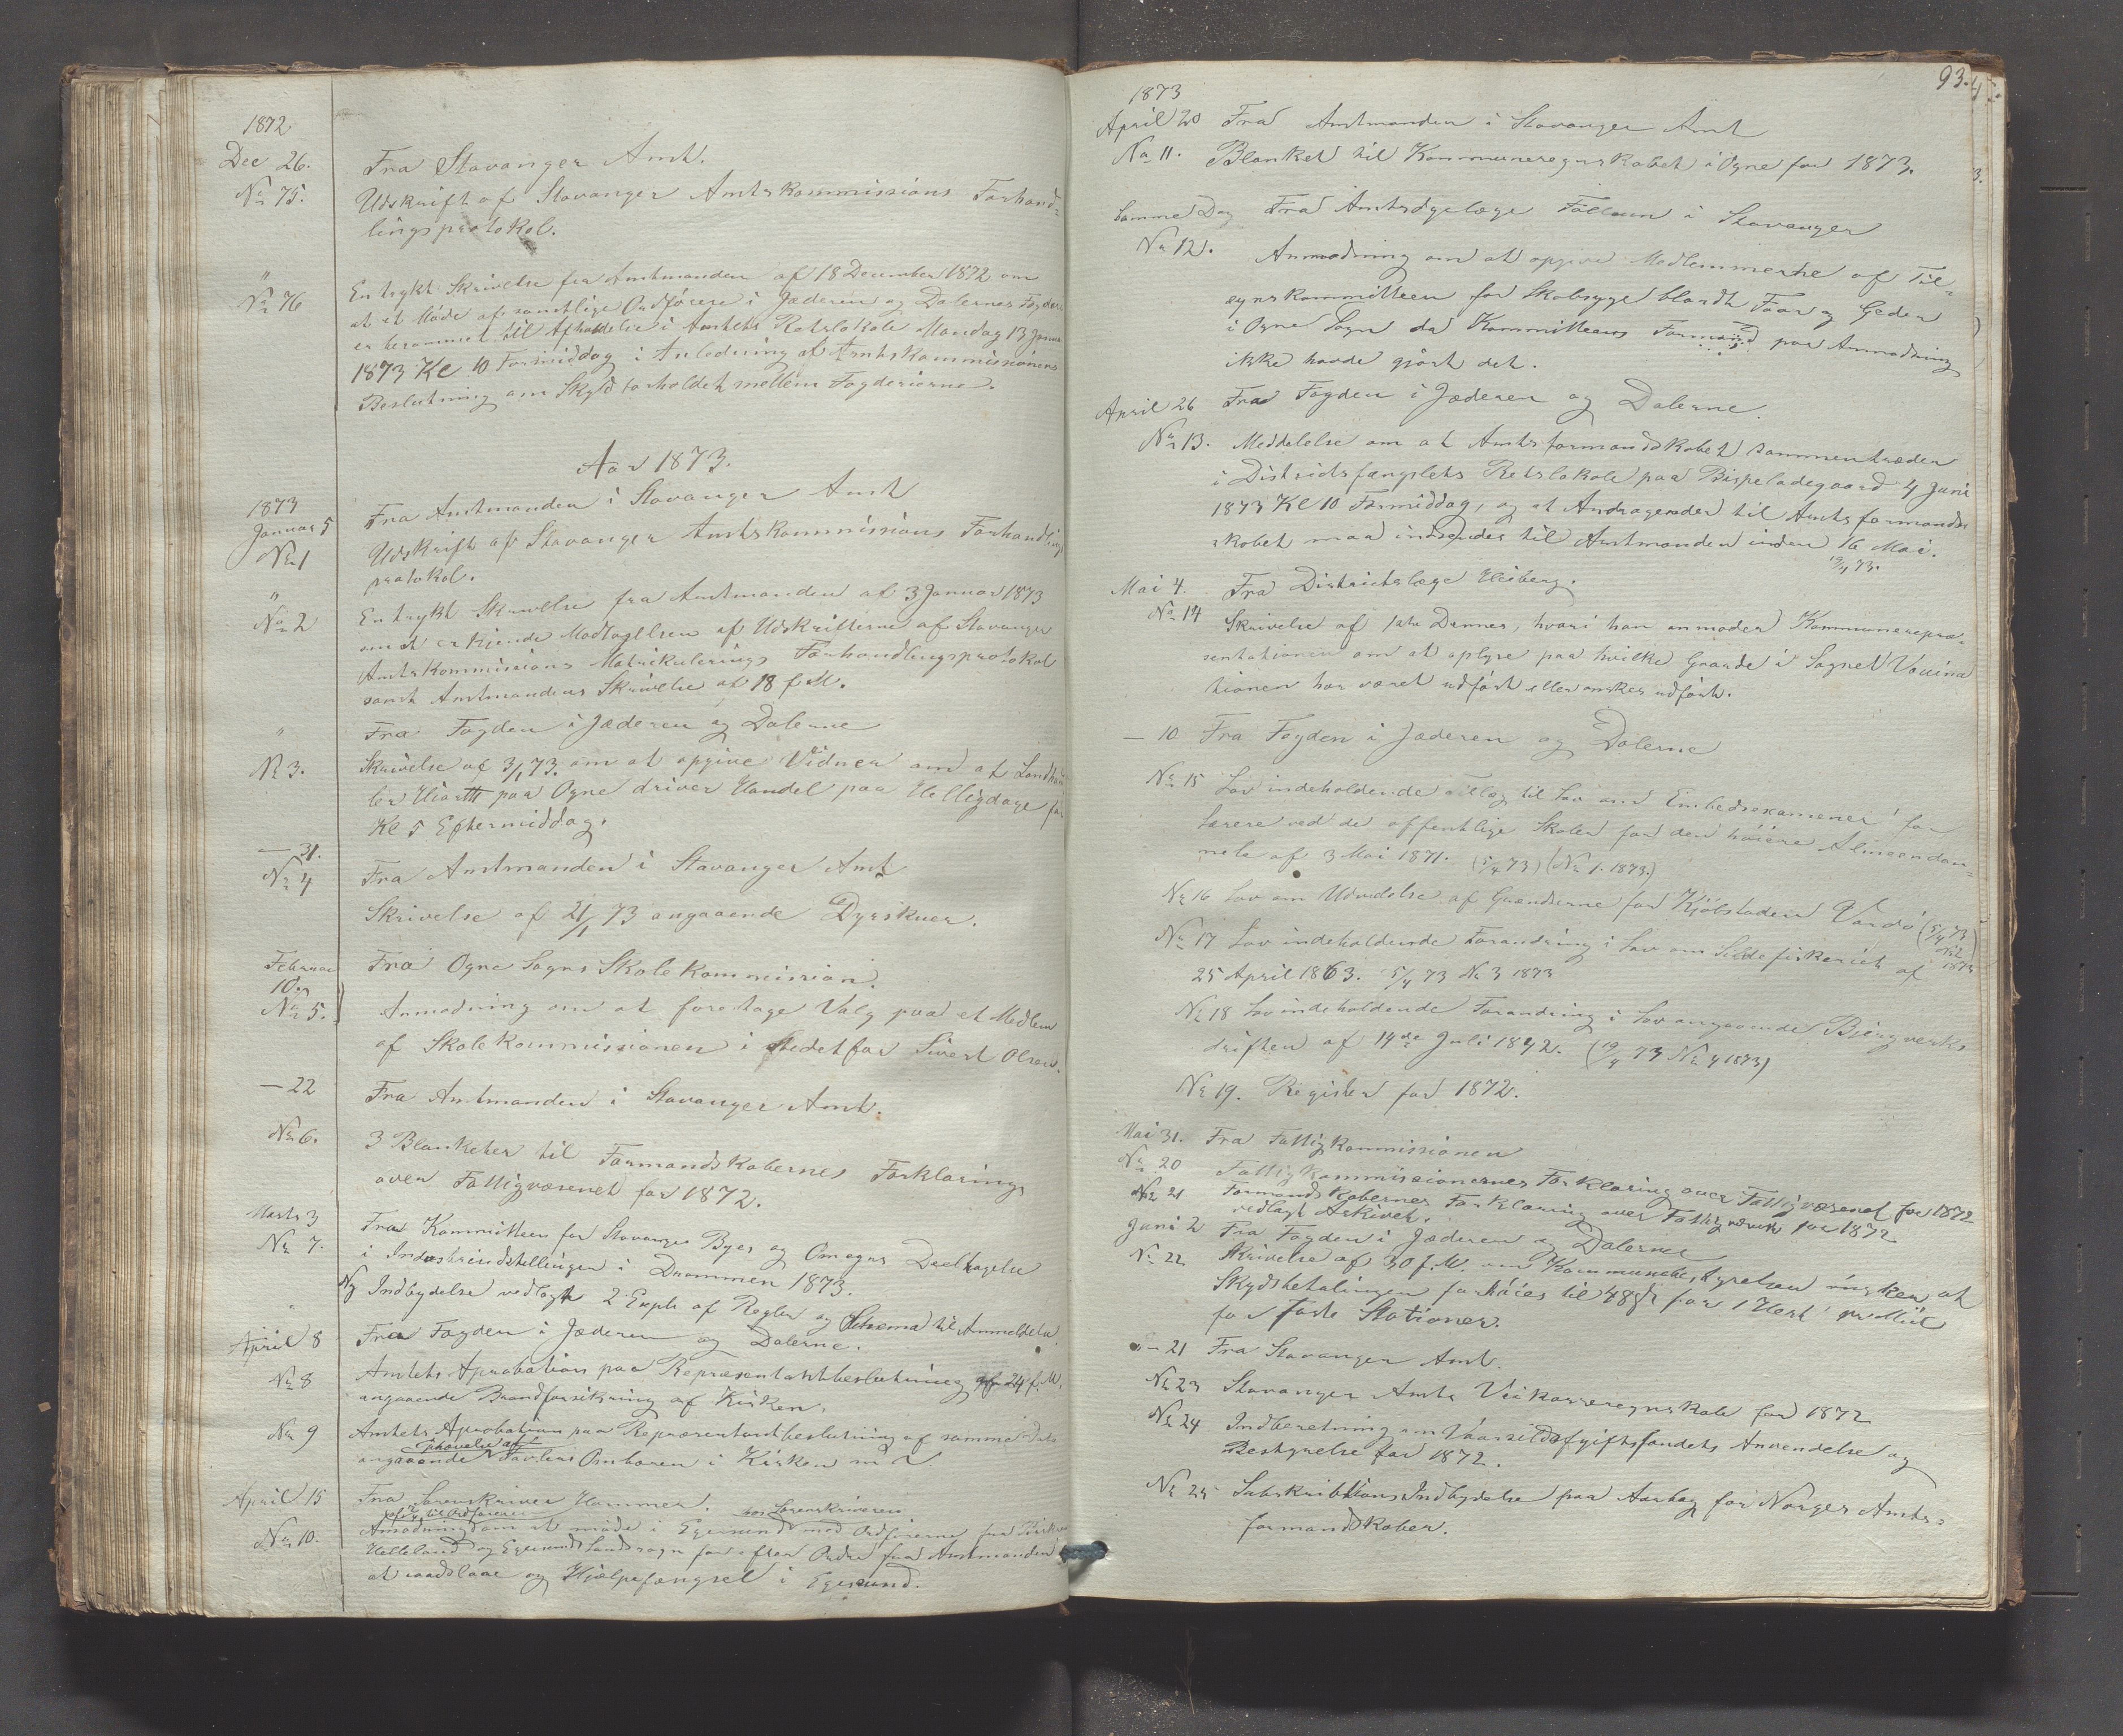 1872
Dec 26. Fra Stavanger Amt.
No 75. Udskrift af Stavanger Amtskommissions Forhand-
lingsprotokol.
" En trykt Skrivelse fra Amtmanden af 18 December 1872 om
No 76 at et Møde af samtlige Ordførere i Jæderen og Dalernes Fogderi
er berammet til Afholdelse i Amtets Retslokale Mandag 13 Januar
1873 Kl 10 Formiddag i Anledning af Amtskommissionens
Beslutning om Skyldforholdet mellem Fogderierne.
Aar 1873.
1873
Januar 5 Fra Amtmanden i Stavanger Amt
No 1 Udskrift af Stavanger Amtskommissions Forhandlings
protokol.
" En trykt Skrivelse fra Amtmanden af 3 Januar 1873
No 2 om at erkjende Modtagelsen af Udskrifterne af Stavanger
Amtskommissions Matrikulerings Forhandlingsprotokol
samt Amtmandens Skrivelse af 18 f. M.
" Fra Fogden i Jæderen og Dalerne
No 3. Skrivelse af 3/1 73. om at opgive Vidner om at Landhan
ler Hiorth paa Ogne driver Handel paa Helligdage før
Kl 5 Eftermiddag.
— 31.
No 4 Fra Amtmanden i Stavanger Amt
Skrivelse af 21/1 73 angaaende Dyrskuer.
Februar Fra Ogne Sogns Skolekommission.
10.
No 5. Anmodning om at foretage Valg paa et Medlem
af Skolekommissionen i Stedet for Sivert Olsen.
— 22 Fra Amtmanden i Stavanger Amt.
No 6. 3 Blanketer til Formandskabernes Forklaring
over Fattigvæsenet for 1872.
Marts 3 Fra Kommitteen for Stavanger Byes og Omegns Deeltagelse
No 7. i Industriudstillingen i Drammen 1873.
Ny Indbydelse vedlagt 2 Expl. af Regler og Schema til Anmeldelse.
April 8 Fra Fogden i Jæderen og Dalerne.
No 8 Amtets Aprobation paa Repræsentantbeslutning af 24 f. M.
angaaende Brandforsikring af Kirken.
No 9 Amtets Aprobation paa Repræsentantbeslutning af samme Dato
Ophævelse af
angaaende Tavlens Ombæren i Kirken m. v.
April 15 Fra Sorenskriver Hammer. hos Sorenskriveren
til Ordføreren
No 10. Anmodning om at møde i Egersund med Ordførerne for
Helleland og Egersunds Landsogn for efter Ordre fra Amtmanden
at raadslaae og Hjælpefængsel i Egersund.
93.
1873
April 20 Fra Amtmanden i Stavanger Amt
No 11. Blanket til Kommuneregnskabet i Ogne for 1873.
3.
Samme Dag Fra Amtsdyrlæge Tøllum i Stavanger
No 12. Anmodning om at opgive Medlemmerne af Til-
synskommitteen for Skabsyge blandt Faar og Geder
i Ogne Sogn da Kommitteens Formand paa Anmodning
ikke havde gjørt det.
April 26 Fra Fogden i Jæderen og Dalerne.
No 13. Meddelelse om at Amtsformandskabet sammentræder
i Distriktsfængslets Retslokale paa Bispeladegaard 4 Juni
1873 Kl 10 Formiddag, og at Andragender til Amtsformands-
skabet maa indsendes til Amtmanden inden 16 Mai.
19/4 73.
Mai 4. Fra Distriktslæge Heiberg.
No 14 Skrivelse af 1ste Dennes, hvori han anmoder Kommunerepræ-
sentationen om at oplyse paa hvilke Gaarde i Sognet Vaccina
tionen har været udført eller ønskes udført.
— 10 Fra Fogden i Jæderen og Dalerne
No 15 Lov indeholdende Tillæg til Lov om Embedsexamener for
Lærere ved de offentlige Skoler for den høiere Almeendan-
nelse af 3 Mai 1871. (5/4 73) (No 1. 1873.)
No 16 Lov om Udvidelse af Grændserne for Kjøbstaden Vardø (5/4 73
No 2
1873)
No 17 Lov indeholdende Forandring i Lov om Sildefiskeriet af
25 April 1863. 5/4 73 No 3 1873
No 18 Lov indeholdende Forandring i Lov angaaende Bjergverks
driften af 14de Juli 1842. (19/4 73 No 4 1873)
No 19. Register for 1872.
Mai 31. Fra Fattigkommissionen
No 20 Fattigkommissionernes Forklaring over Fattigvæsenet for 1872
No 21 Formandskabernes Forklaring over Fattigvæsenet for 1872
vedlagt Arkivet.
Juni 2 Fra Fogden i Jæderen og Dalerne
No 22 Skrivelse af 30 f. M. om Kommunebestyrelsen ønsker at
Skydsbetalingen forhøies til 48 s for 1 Hest pr Miil
for faste Stationer.
— 21 Fra Stavanger Amt.
No 23 Stavanger Amts Veikasseregnskab for 1872
No 24 Indberetning om Vaarsildafgiftsfondets Anvendelse og
Bestyrelse for 1872.
No 25 Subskribtions Indbydelse paa Aarbog for Norges Amts-
formandskaber.